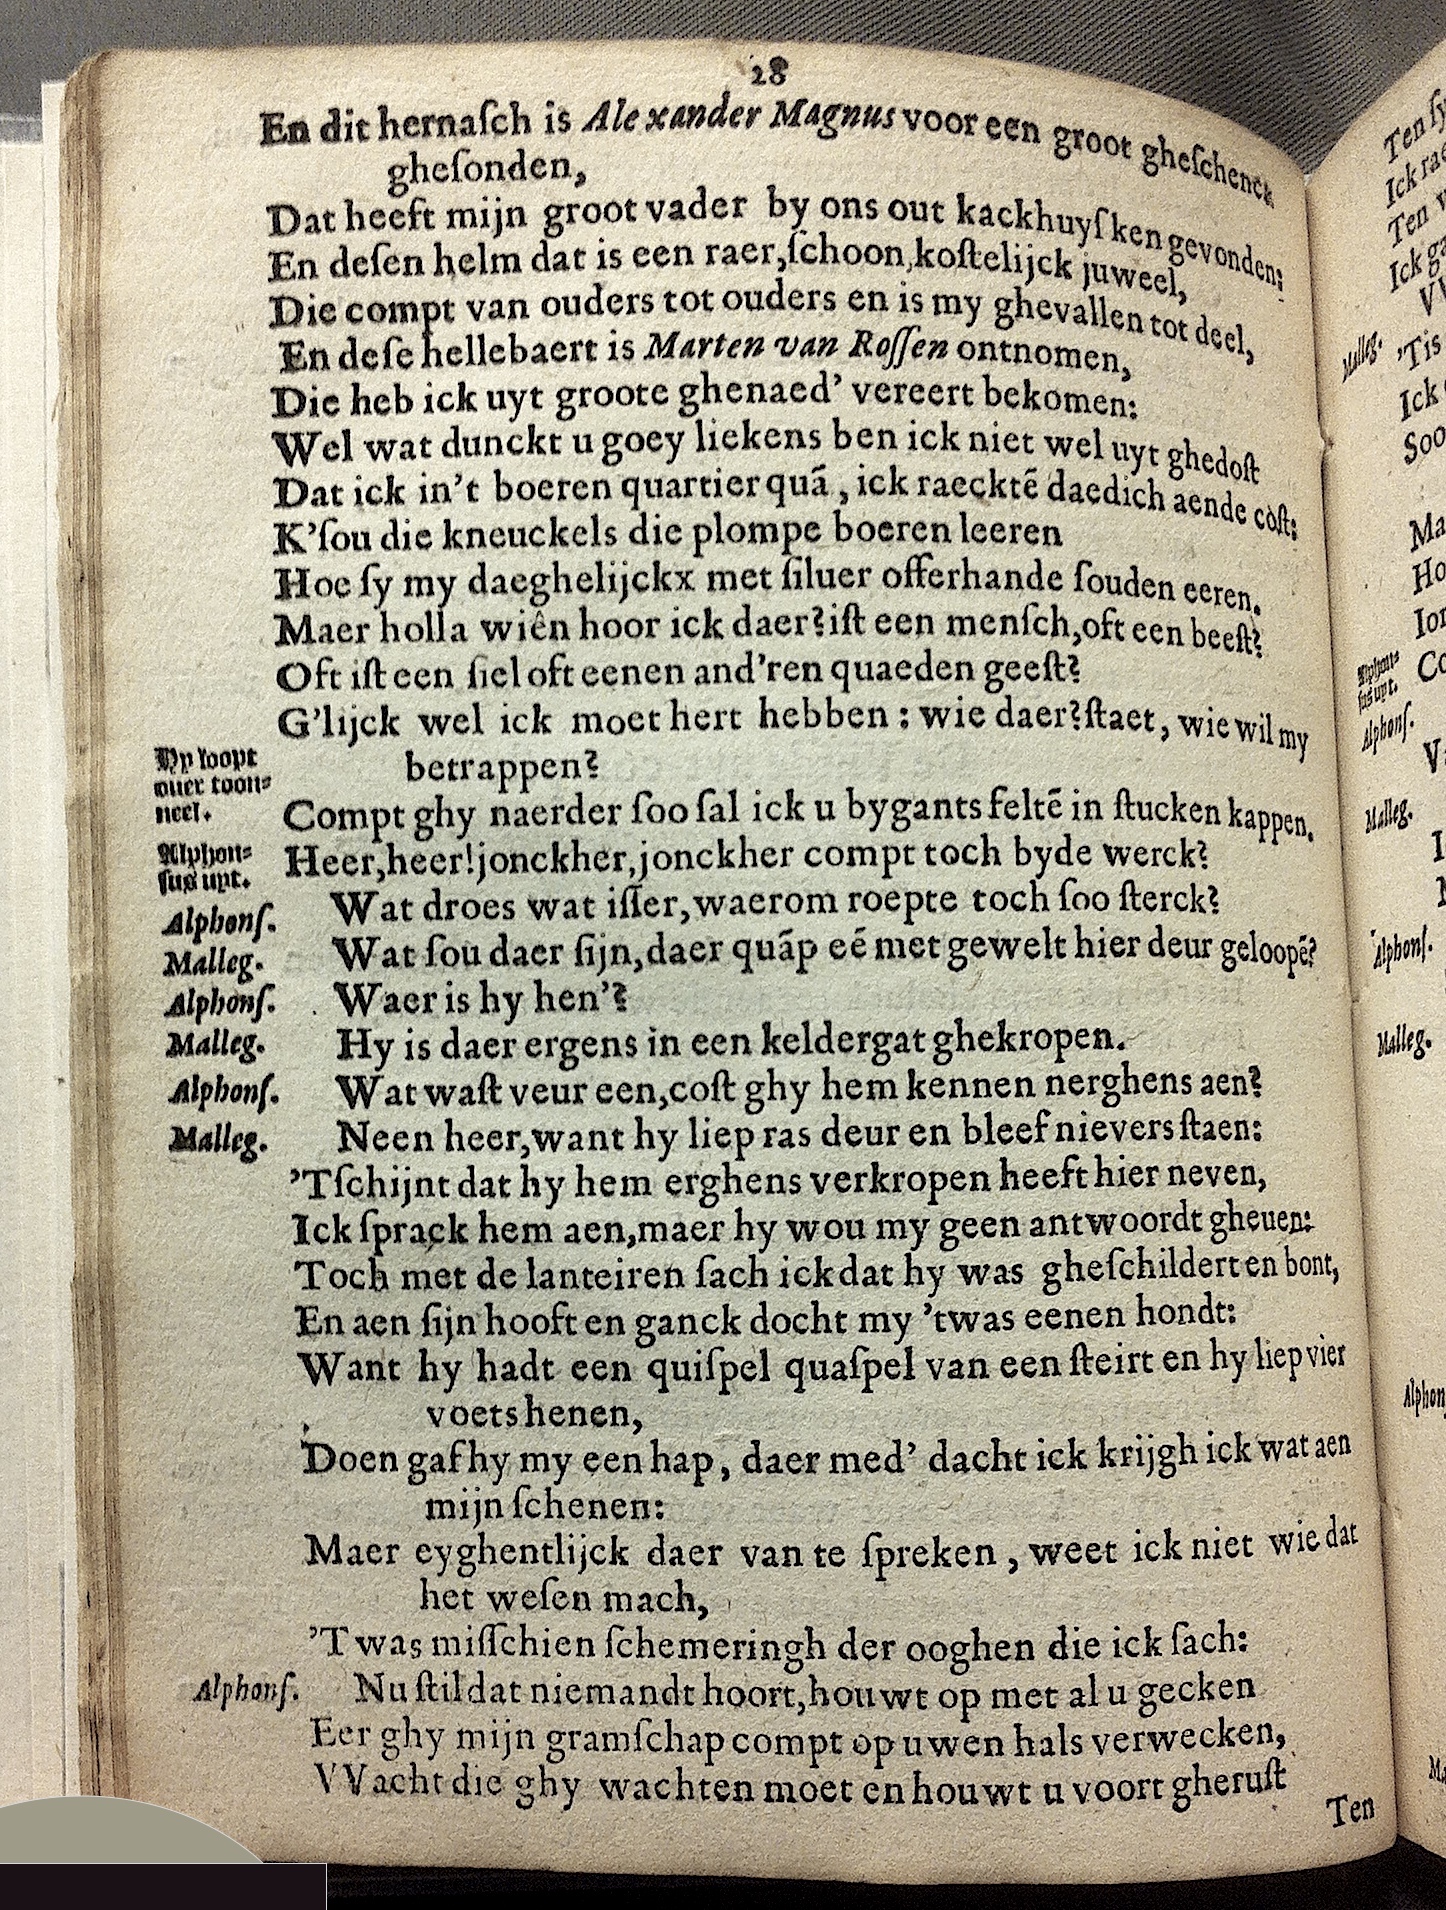 28
En dit hernaſch is Alexander Magnus voor een groot gheſchenck
gheſonden,
Dat heeft mijn groot vader by ons out kackhuyſken gevonden:
En deſen helm dat is een raer, ſchoon, koſtelijck juweel,
Die compt van ouders tot ouders en is my ghevallen tot deel,
En deſe hellebaert is Marten van Roſſen ontnomen,
Die heb ick uyt groote ghenaed' vereert bekomen:
Wel wat dunckt u goey liekens ben ick niet wel uyt ghedoſt
Dat ick in't boeren quartier quã, ick raecktẽ daedich aende coſt:
K'ſou die kneuckels die plompe boeren leeren
Hoe ſy my daeghelijckx met ſiluer offerhande ſouden eeren.
Maer holla wiên hoor ick daer? iſt een menſch, oft een beeſt?
Oft iſt een ſiel oft eenen and'ren quaeden geeſt?
G'lijck wel ick moet hert hebben: wie daer? ſtaet, wie wil my
betrappen?
Hy loopt
ouer toon⸗
neel.
Compt ghy naerder ſoo ſal ick u bygants feltẽ in ſtucken kappen.
Alphon⸗
ſus uyt.
Heer, heer! jonckher, jonckher compt toch byde werck?
Alphonſ. Wat droes wat iſſer, waerom roepte toch ſoo ſterck?
Malleg. Wat ſou daer ſijn, daer quãp eẽ met gewelt hier deur geloopẽ?
Alphonſ. Waer is hy hen'?
Malleg. Hy is daer ergens in een keldergat ghekropen.
Alphonſ. Wat waſt veur een, coſt ghy hem kennen nerghens aen?
Malleg. Neen heer, want hy liep ras deur en bleef nievers ſtaen:
'Tſchijnt dat hy hem erghens verkropen heeft hier neven,
Ick ſprack hem aen, maer hy wou my geen antwoordt gheuen:
Toch met de lanteiren ſach ick dat hy was gheſchildert en bont,
En aen ſijn hooft en ganck docht my 'twas eenen hondt:
Want hy hadt een quiſpel quaſpel van een ſteirt en hy liep vier
voets henen,
Doen gaf hy my een hap, daer med' dacht ick krijgh ick wat aen
mijn ſchenen:
Maer eyghentlijck daer van te ſpreken, weet ick niet wie dat
het weſen mach,
'T was miſſchien ſchemeringh der ooghen die ick ſach:
Alphonſ. Nu ſtil dat niemandt hoort, houwt op met al u gecken
Eer ghy mijn gramſchap compt op uwen hals verwecken,
VVacht die ghy wachten moet en houwt u voort gheruſt
Ten
Ten
Ick
Ten
Ick
Malleg. 'Tis
Ick
Soo
Alphonſ.
Malleg.
Alphonſ.
Malleg.